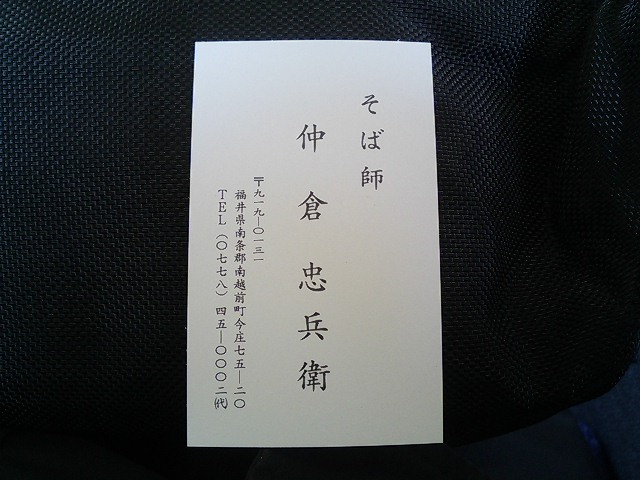 そば師
仲倉忠兵衛
〒九一九―〇一三一
福井県南条郡南越前町今庄七五―二〇
TEL（〇七七八）四五―〇〇〇二㈹